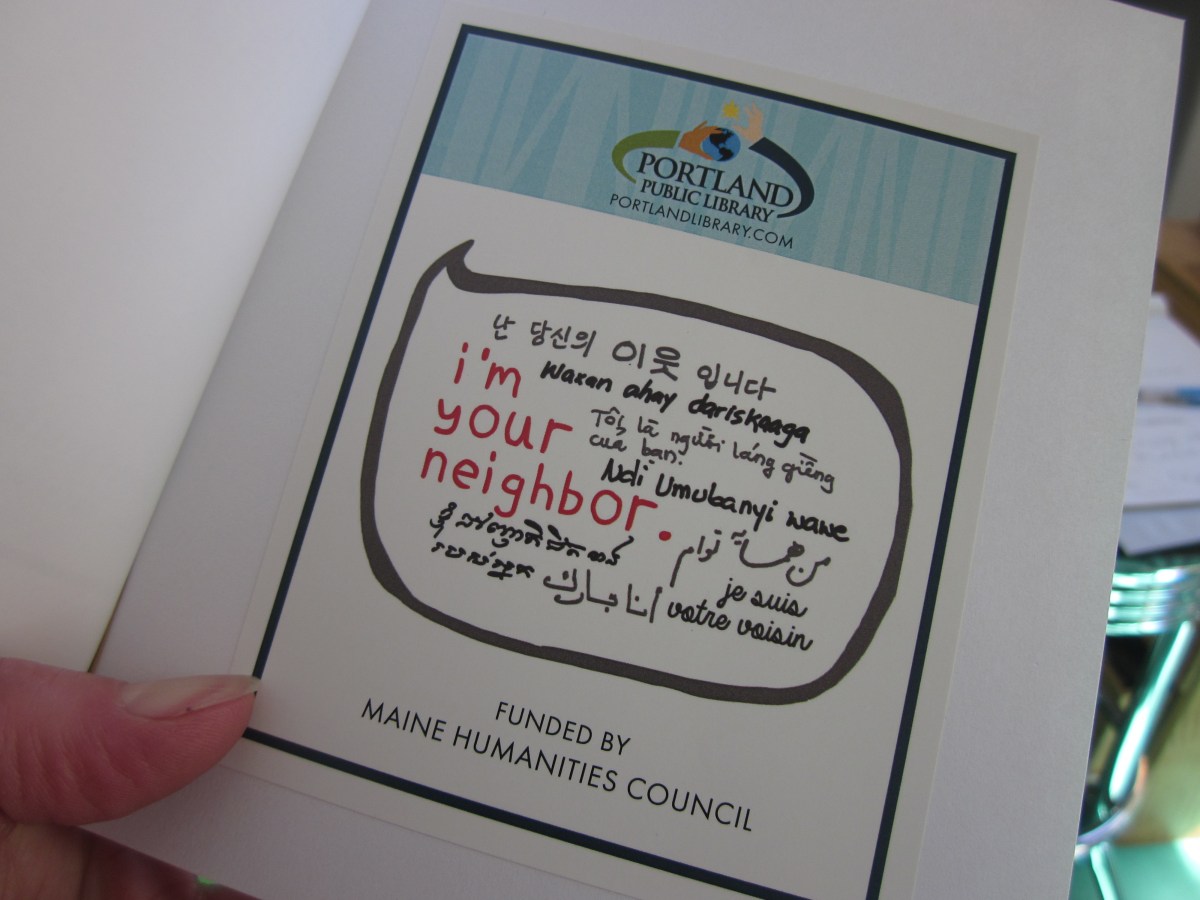 PORTLAND
PUBLIC LIBRARY
PORTLANDLIBRARY.COM
난 당신의 이웃 입니다
i'm
your
neighbor.
waxan ahay dariskaaga
Tôi là người láng giềng
của bạn.
Ndi Umubanyi wawe
من همسایه توام
je suis
votre voisin
أنا جارك
FUNDED BY
MAINE HUMANITIES COUNCIL